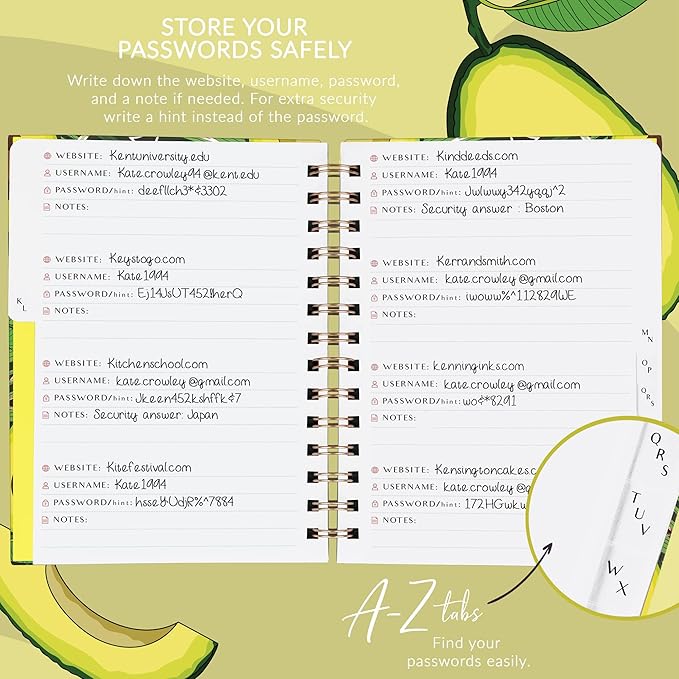 STORE YOUR
PASSWORDS SAFELY
Write down the website, username, password,
and a note if needed. For extra security
write a hint instead of the password.
WEBSITE: Kentuniversity.edu
USERNAME: Katecrowley94@kent.edu
PASSWORD/hint: deefllch3*&3302
NOTES:
WEBSITE: Keystogo.com
USERNAME: Kate1994
PASSWORD/hint:
NOTES:
WEBSITE: Kitchenschool.com
USERNAME: kate.crowley@gmail.com
PASSWORD/hint: Jkeen452kshffk&7
NOTES: Security answer: Japan
WEBSITE: Kitefestival.com
USERNAME: Kate1994
PASSWORD/hint: hsseYUdjR%^7884
NOTES:
KL
WEBSITE: Kinddeeds.com
USERNAME: Kate1994
PASSWORD/hint: Jwlwwy342yqqj^2
NOTES: Security answer : Boston
WEBSITE: Kerrandsmith.com
USERNAME: kate.crowley@gmail.com
PASSWORD/hint: iwoww%^112829WE
NOTES:
WEBSITE: kenninginks.com
USERNAME: kate.crowley@gmail.com
PASSWORD/hint: wo&*8291
NOTES:
WEBSITE: Kensingtoncakes.c
USERNAME: kate.crowley@g
PASSWORD/hint: 172HGwkw
NOTES:
MN
OP
QRS
QRS
TUV
WX
A-Z tabs
Find your
passwords easily.